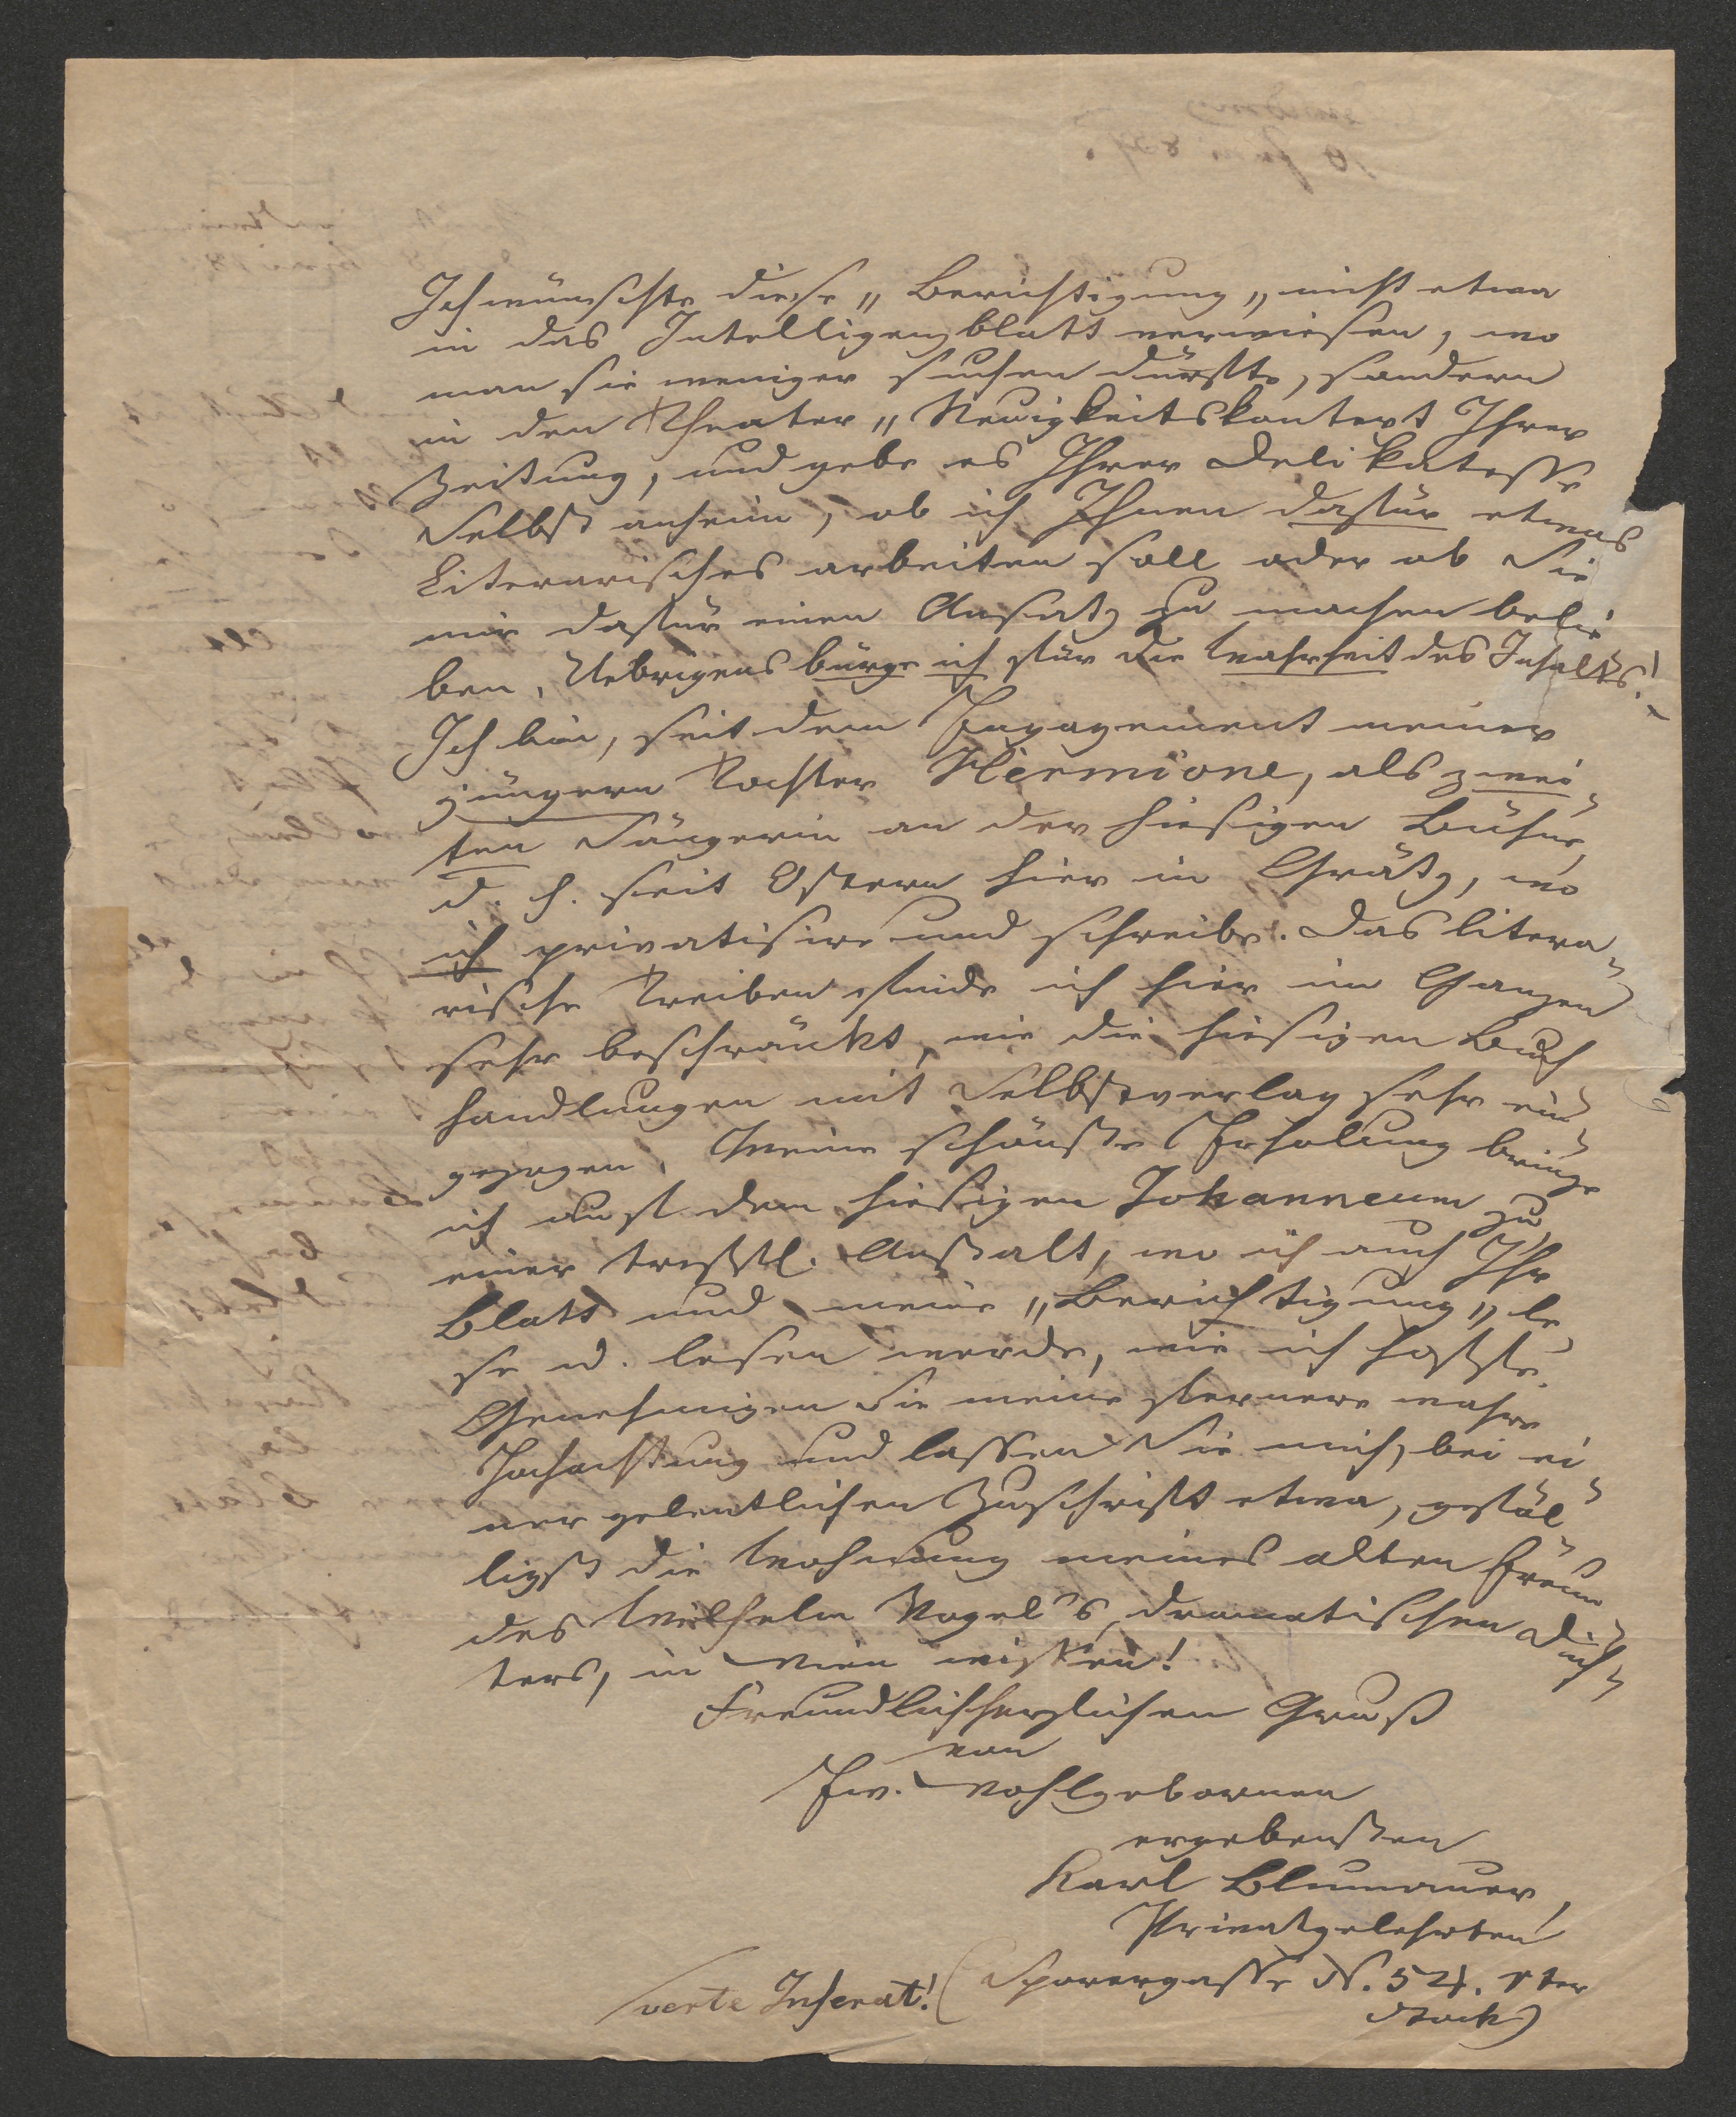 Ich wünschte diese „Berichtigung„ nicht etwa
in das Intelligenzblatt verwiesen, wo
man sie weniger suchen dürfte, sondern
in den Theater„ Neuigkeitskontext Ihrer
Zeitung, und gebe es Ihrer Delikatesse
Selbst anheim, ob ich Ihnen dafür etwas
Literarisches arbeiten soll oder ob Sie
mir dafür einen Ansatz zu machen belie
ben. Uebrigens bürge ich für die Wahrheit des Inhalts!
Ich bin, seit dem Engagement meiner
jüngern Tochter Hermione, als zwei-
ten Sängerin an der hiesigen Bühne,
d. h. seit Ostern hier in Grätz, wo
ich privatisire und schreibe. Das litera-
rische Treiben finde ich hier im Ganzen
sehr beschränkt, wie die hiesigen Buch
handlungen mit Selbstverlag sehr ein-
gezogen. Meine schönste Erholung bringe
ich auf dem hiesigen Johanneum zu
einer treffl. Anstalt, wo ich auch Ihr
Blatt und meine „Berichtigung„ le
se u. lesen werde, wie ich hoffe.
Genehmigen Sie meine fernere wahre
Hochachtung und lassen Sie mich, bei ei-
ner gelentlichen Zuschrift etwa, gefäl-
ligst die Wohnung meines alten Freun
des Wilhelm Vogel's, dramatischen Dich-
ters, in Wien wissen!
Freundlichherzlichen Gruß
von
Ew. Wohlgebornen
ergebensten
Karl Blumauer,
Privatgelehrten
(Sporergasse N. 54. 1ter
Stock)
verte Inserat!